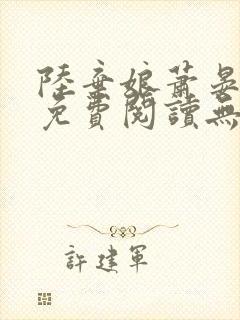 陸棄娘蕭晏
免費閱讀無
許建軍